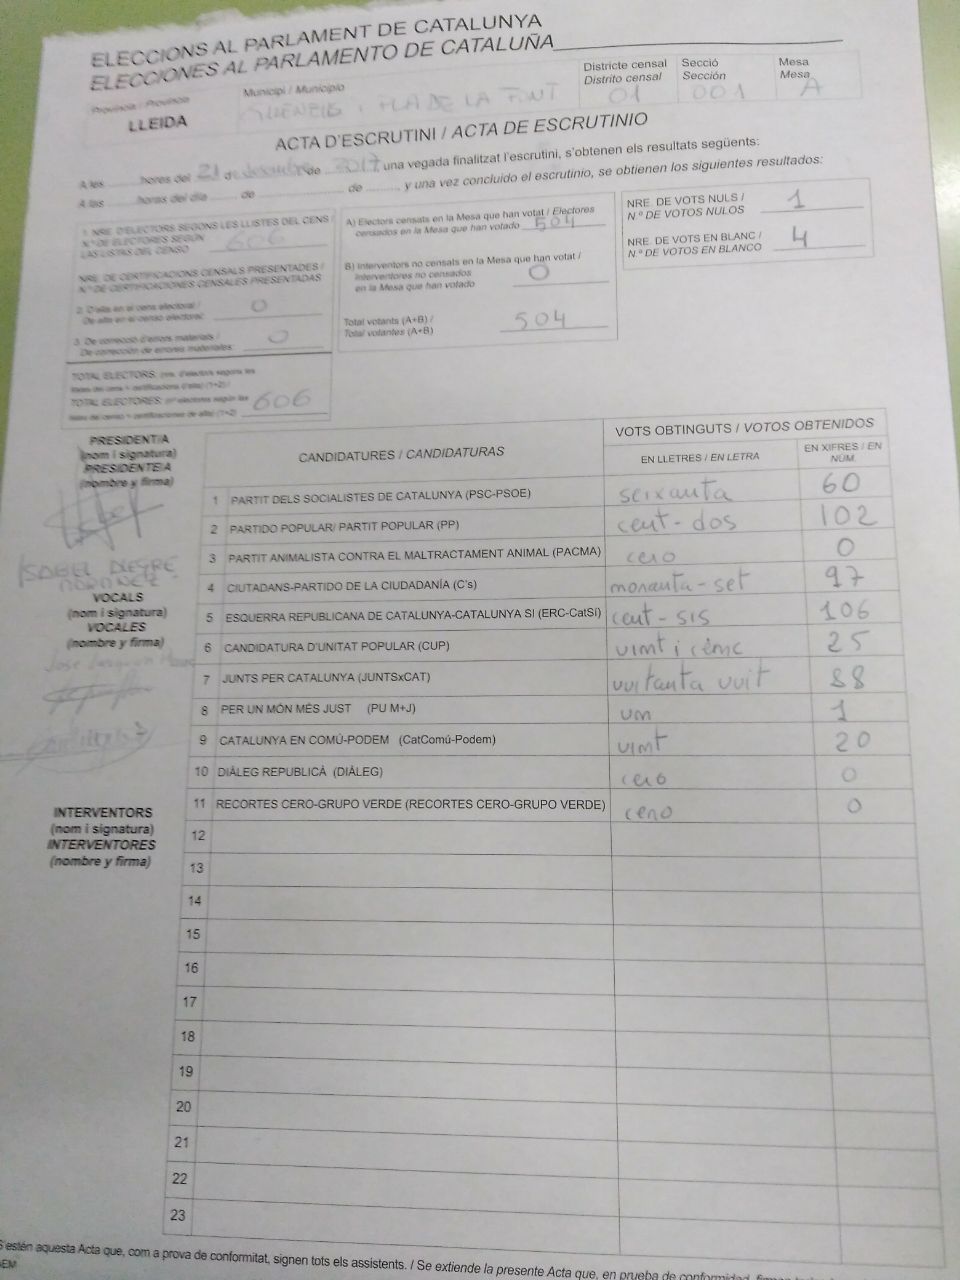 ELECCIONS AL PARLAMENT DE CATALUNYA
ELECCIONES AL PARLAMENTO DE CATALUÑA
Província / Provincia
LLEIDA
Municipi / Municipio
PLA DE LA FONT
Districte censal
Distrito censal
01
Secció
Sección
001
Mesa
Mesa
A
ACTA D'ESCRUTINI / ACTA DE ESCRUTINIO
A les ......... hores del 21 d desembre de 2017, una vegada finalitzat l'escrutini, s'obtenen els resultats següents:
A las ......... horas del día ......... de ......... de ........., y una vez concluido el escrutinio, se obtienen los siguientes resultados:
1. NRE. D'ELECTORS SEGONS LES LLISTES DEL CENS /
N.º DE ELECTORES SEGÚN
LAS LISTAS DEL CENSO
606
NRE. DE CERTIFICACIONS CENSALS PRESENTADES /
N.º DE CERTIFICACIONES CENSALES PRESENTADAS
2. D'alta en el cens electoral /
De alta en el censo electoral:
0
3. De correcció d'errors materials /
De corrección de errores materiales:
0
TOTAL ELECTORS: (nre. d'electors segons les
llistes del cens + certificacions d'alta) (1+2) /
TOTAL ELECTORES: (nº electores según las
listas del censo + certificaciones de alta) (1+2)
606
A) Electors censats en la Mesa que han votat / Electores
censados en la Mesa que han votado
504
B) Interventors no censats en la Mesa que han votat /
Interventores no censados
en la Mesa que han votado
0
Total votants (A+B) /
Total votantes (A+B)
504
NRE. DE VOTS NULS /
N.º DE VOTOS NULOS
1
NRE. DE VOTS EN BLANC /
N.º DE VOTOS EN BLANCO
4
PRESIDENT/A
(nom i signatura)
PRESIDENTE/A
(nombre y firma)
ISABEL
VOCALS
(nom i signatura)
VOCALES
(nombre y firma)
INTERVENTORS
(nom i signatura)
INTERVENTORES
(nombre y firma)
CANDIDATURES / CANDIDATURAS
VOTS OBTINGUTS / VOTOS OBTENIDOS
EN LLETRES / EN LETRA
EN XIFRES / EN NÚM.
1 PARTIT DELS SOCIALISTES DE CATALUNYA (PSC-PSOE) seixanta 60
2 PARTIDO POPULAR/ PARTIT POPULAR (PP) cent-dos 102
3 PARTIT ANIMALISTA CONTRA EL MALTRACTAMENT ANIMAL (PACMA) cero 0
4 CIUTADANS-PARTIDO DE LA CIUDADANÍA (C's) noranta-set 97
5 ESQUERRA REPUBLICANA DE CATALUNYA-CATALUNYA SÍ (ERC-CatSí) cent-sis 106
6 CANDIDATURA D'UNITAT POPULAR (CUP) vint i cinc 25
7 JUNTS PER CATALUNYA (JUNTSxCAT) vuitanta vuit 88
8 PER UN MÓN MÉS JUST (PU M+J) un 1
9 CATALUNYA EN COMÚ-PODEM (CatComú-Podem) vint 20
10 DIÀLEG REPUBLICÀ (DIÀLEG) cero 0
11 RECORTES CERO-GRUPO VERDE (RECORTES CERO-GRUPO VERDE) cero 0
12
13
14
15
16
17
18
19
20
21
22
23
S'estén aquesta Acta que, com a prova de conformitat, signen tots els assistents. / Se extiende la presente Acta que, en prueba de conformidad,